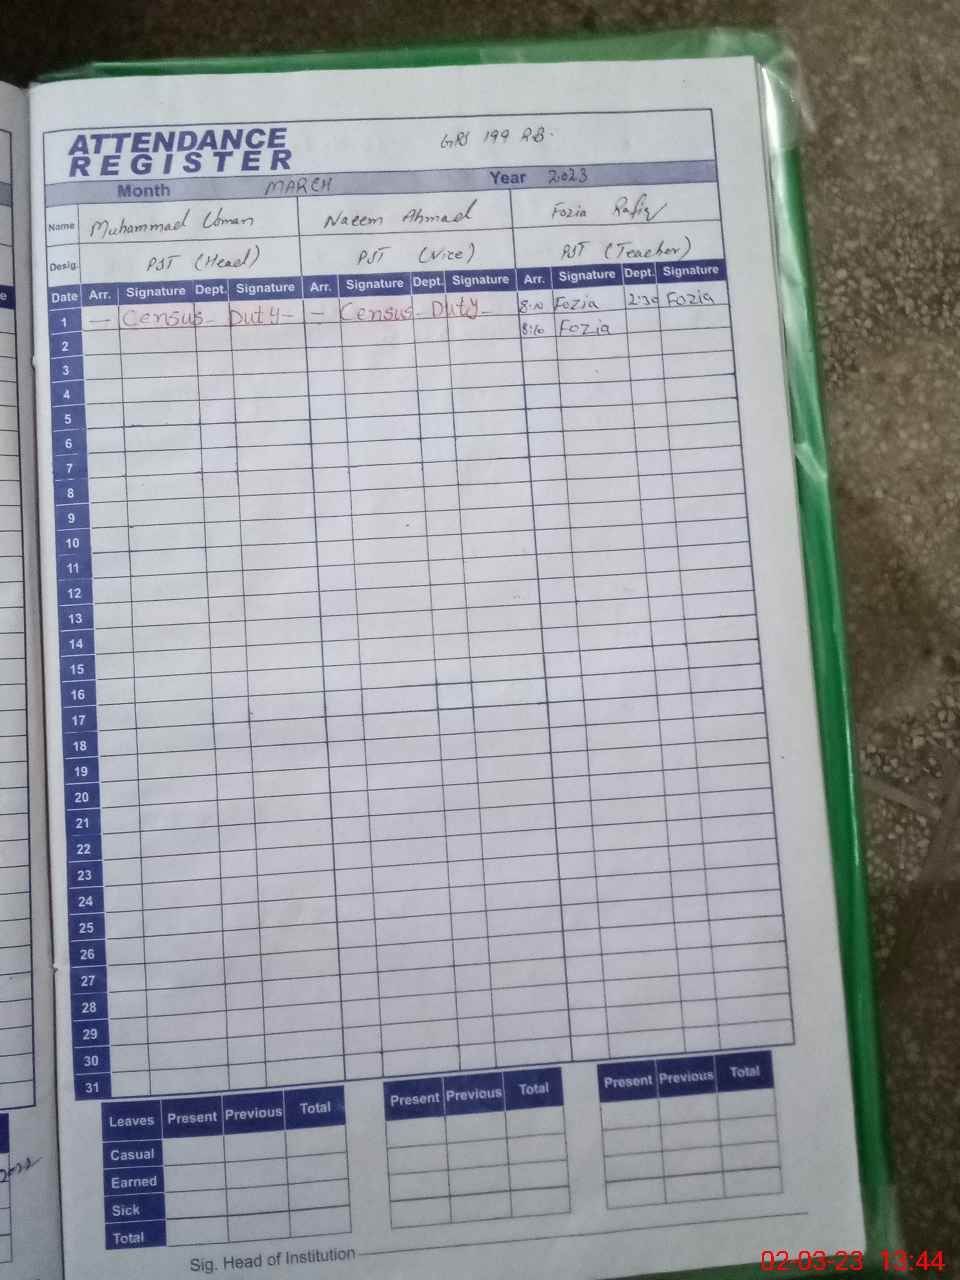 ATTENDANCE
REGISTER
GPS 199 R.B.
Month MARCH Year 2023
Name Muhammad Usman Naeem Ahmad Fozia Rafiq
Desig. PST (Head) PST (Vice) PST (Teacher)
Date Arr. Signature Dept. Signature Arr. Signature Dept. Signature Arr. Signature Dept. Signature
1 — Census - Duty - — Census - Duty - 8:10 Fozia 2:30 Fozia
2 8:10 Fozia
3
4
5
6
7
8
9
10
11
12
13
14
15
16
17
18
19
20
21
22
23
24
25
26
27
28
29
30
31
Leaves Present Previous Total Present Previous Total Present Previous Total
Casual
Earned
Sick
Total
Sig. Head of Institution
02-03-23 13:44